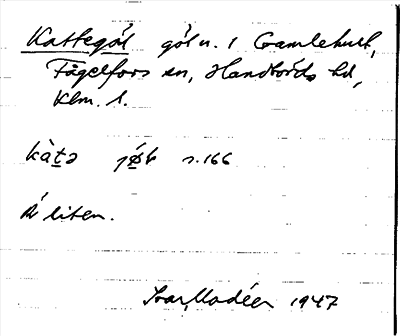 Kattegöl göl n. 1 Gamlehult,
Fågelfors sn, Handbörds hd,
Klm. l.
kàtə s. 166
Ä liten.
Ivar Modéer 1947